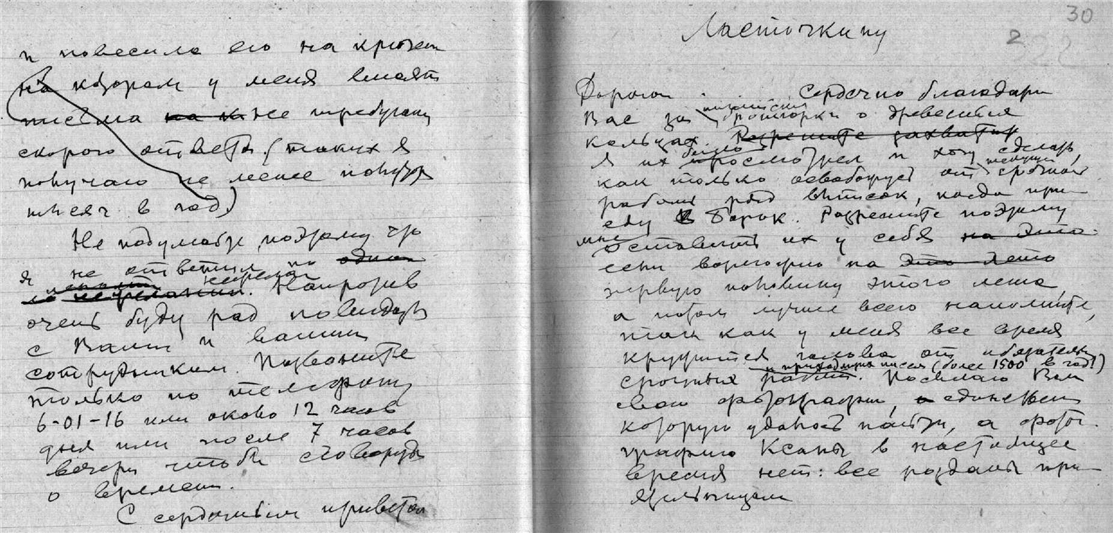 и повесила его на крючок
на котором у меня висят
письма не требующие
скорого ответа (таких я
получаю не менее
тысяч в год)
Не подумайте поэтому что
я не ответил по
нежеланию. Напротив
очень буду рад повидать
с Вами и вашим
сотрудником. Позвоните
только по телефону
6-01-16 или около 12 часов
дня или после 7 часов
вечера чтобы сговориться
о времени.
С сердечным приветом
30
2
Ласточкину
Дорогой . Сердечно благодарю
Вас за брошюрки о древесных
кольцах Разрешите захватить
я их просмотрел и хочу сделать,
как только освобожусь от срочной
работы ряд выписок, когда при
еду в Борок. Разрешите поэтому
мне оставить их у себя
на это лето
первую половину этого лета
а потом лучше всего напомните,
так как у меня все время
крутится голова от обязательн
и приходящих писем (более 1500 в год!)
срочных работ. Посылаю Вам
свою фотографию, единствен
которую удалось найти, а фото-
графию Ксаны в настоящее
время нет: все розданы при
ятельницам